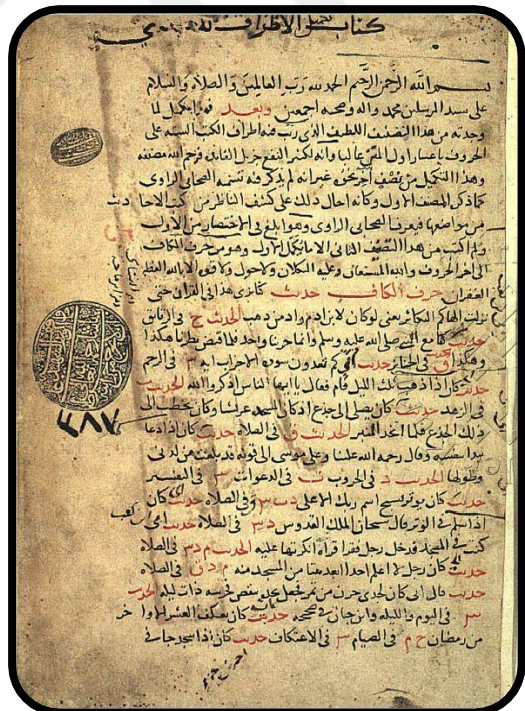 كتاب تكميل الاطراف
بسم الله الرحمن الرحيم الحمد لله رب العالمين والصلاة والسلام
على سيد المرسلين محمد واله وصحبه اجمعين وبعد فهذا تكميل لما
وجدته من هذا التصنيف اللطيف الذي رتب فيه اطراف الكتب الستة على
الحروف باعتبار اول المتن غالبا وانه لكثير النفع جزيل الفائدة فرحم الله مصنفه
وهذا التكميل من تصنيف اخر نحوه غير انه لم يذكر فيه تسمية الصحابي الراوي
كما ذكر المصنف الاول وكانه احال ذلك على كشف الناظر من كتب الاحاديث
من مواضعها فيعرف الصحابي الراوي وهو ابلغ في الاختصار من الاول
ولم اكتب من هذا التصنيف الثاني الا ما يكمل الاول وهو من حرف الكاف
الى اخر الحروف والله المستعان وعليه التكلان ولا حول ولا قوة الا بالله العظيم
حرف الكاف حديث كنا نرى هذا في القران حتى
نزلت الهاكم التكاثر يعني لو كان لابن ادم واد من ذهب الحديث خ في الرقاق
حديث كنا مع النبي صلى الله عليه وسلم
وهكذا ق في الجنائز حديث كم تعدون سورة الاحزاب اية س في الرجم
حديث كان اذا ذهب ثلث الليل قام فقال يا ايها الناس اذكروا الله الحديث
في الزهد حديث كان يصلي الى جذع اذ كان المسجد عريشا وكان يخطب الى
ذلك الجذع فلما اتخذ المنبر الحديث ق في الصلاة حديث كان اذا دعا
بدا بنفسه وقال رحمة الله علينا وعلى موسى الى قوله قد بلغت من لدني
وطولها الحديث د في الحروب ت في الدعوات س في التفسير
حديث كان يوتر بسبح اسم ربك الاعلى د س ق في الصلاة حديث كان
اذا سلم في الوتر قال سبحان الملك القدوس د س في الصلاة حديث
كنت في المسجد فدخل رجل فقرا قراة انكرتها عليه الحديث م د س في الصلاة
حديث كان رجل لا اعلم احدا ابعد بيتا من المسجد منه م د ق في الصلاة
حديث قال ابي كان لجدي جرن من تمر فجعل يجده ينقص فحرسه ذات ليلة الحديث
س في اليوم والليلة وابن حبان في صحيحه حديث كان يعتكف العشر الاواخر
من رمضان خ م في الصيام س في الاعتكاف حديث كان اذا سجد جافى
٤٨٧